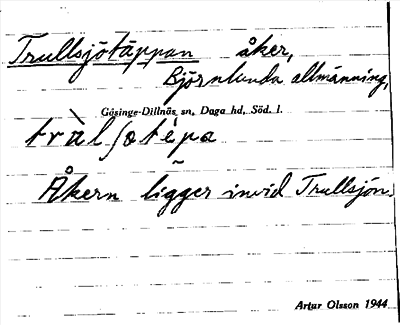 Trullsjötäppan åker,
Björnlunda allmänning,
Gåsinge-Dillnäs sn, Daga hd, Söd. l.
Åkern ligger invid Trullsjön.
Artur Olsson 1944